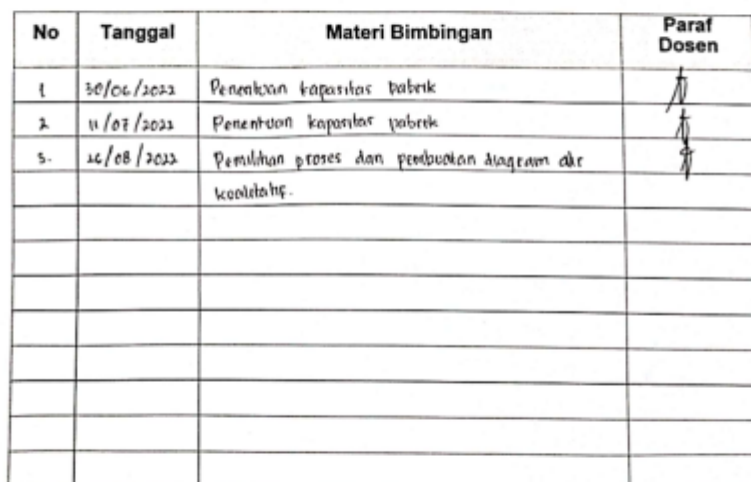 No Tanggal Materi Bimbingan Paraf Dosen
1 30/06/2022 Penentuan kapasitas pabrik
2 11/07/2022 Penentuan kapasitas pabrik
3. 26/08/2022 Pemilihan proses dan pembuatan diagram alir
kualitatif.